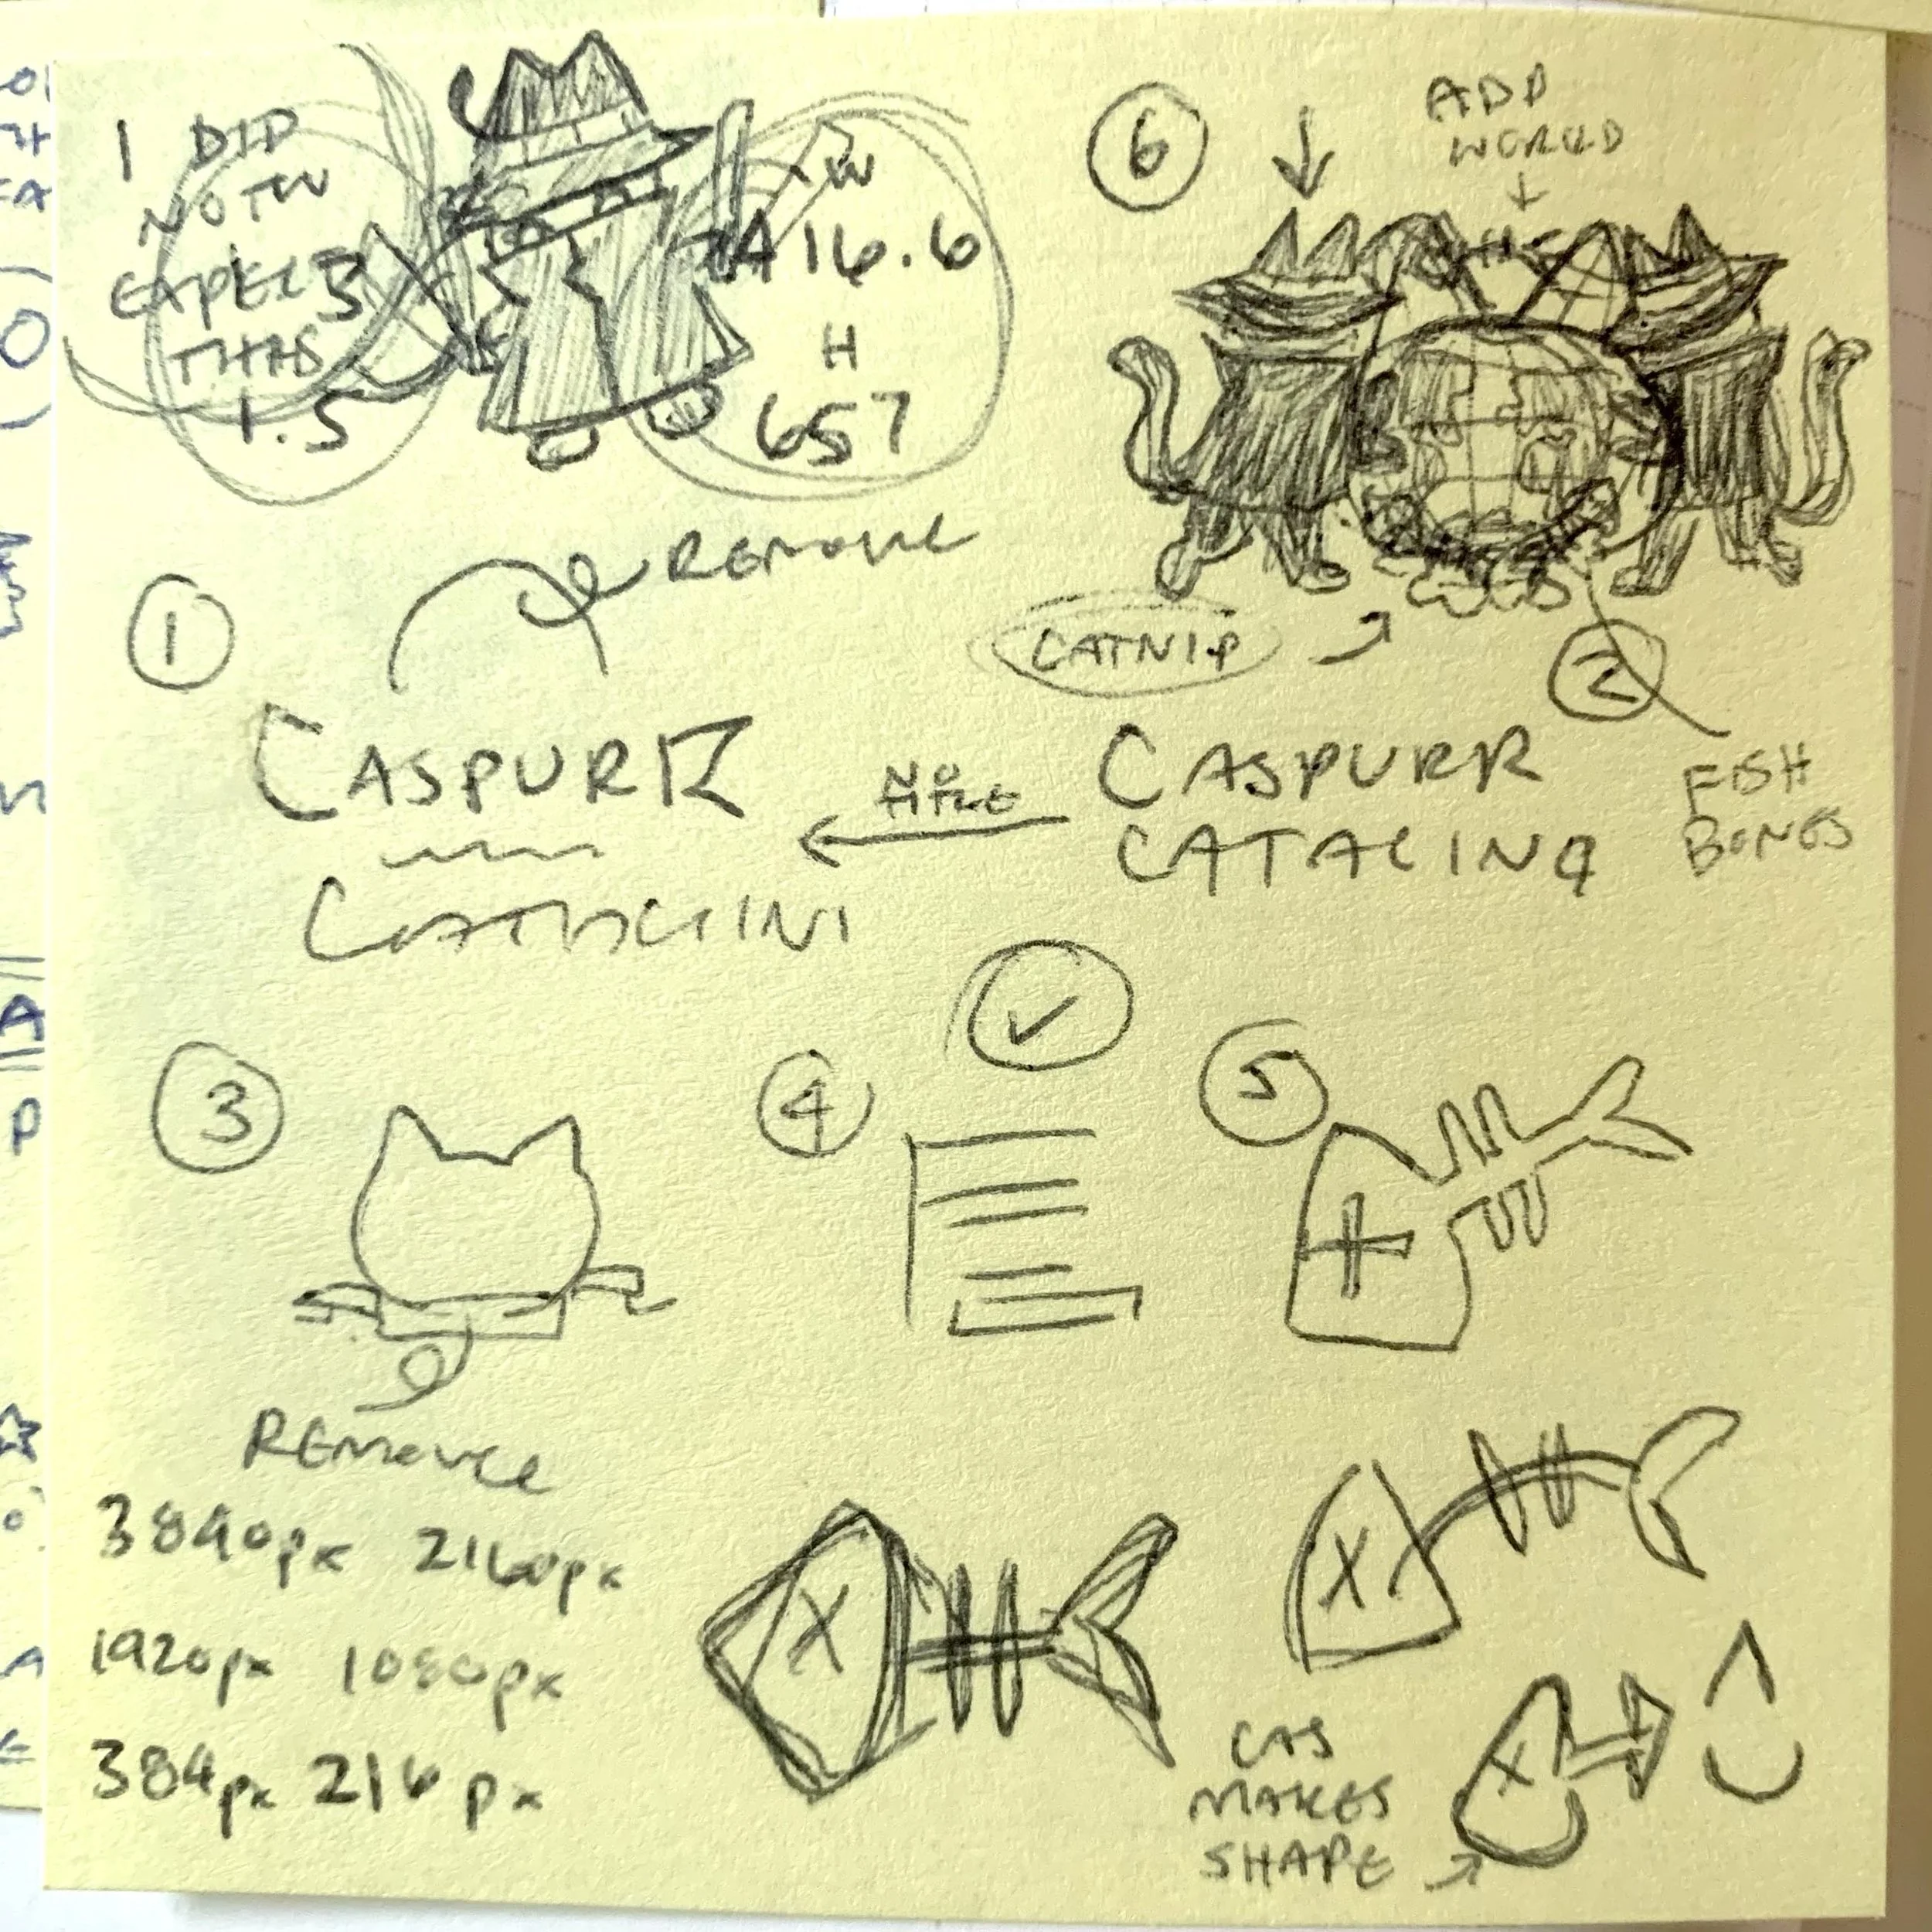 I DID
NOT
EXPECT
THIS
3
1.5
W
16.6
H
657
REMOVE
1
CASPURR
6
ADD
WORLD
CATNIP
2
FISH
BONES
NO
TITLE
CASPURR
CATALINA
3
REMOVE
4
5
3840px 2160px
1920px 1080px
384px 216px
X
X
CAS
MAKES
SHAPE
X